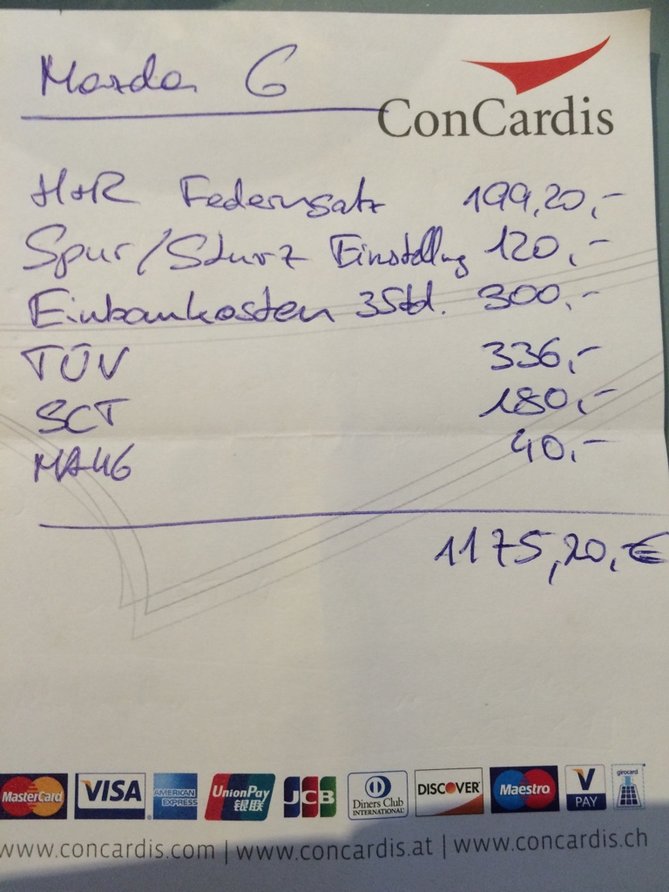 Mazda 6
ConCardis
H+R Federnsatz 199,20,-
Spur/Sturz Einstellung 120,-
Einbaukosten 3Std. 300,-
TÜV 336,-
SCT 180,-
40,-
1175,20,€
MasterCard VISA AMERICAN EXPRESS UnionPay 银联 JCB Diners Club INTERNATIONAL DISCOVER Maestro V PAY girocard
www.concardis.com | www.concardis.at | www.concardis.ch